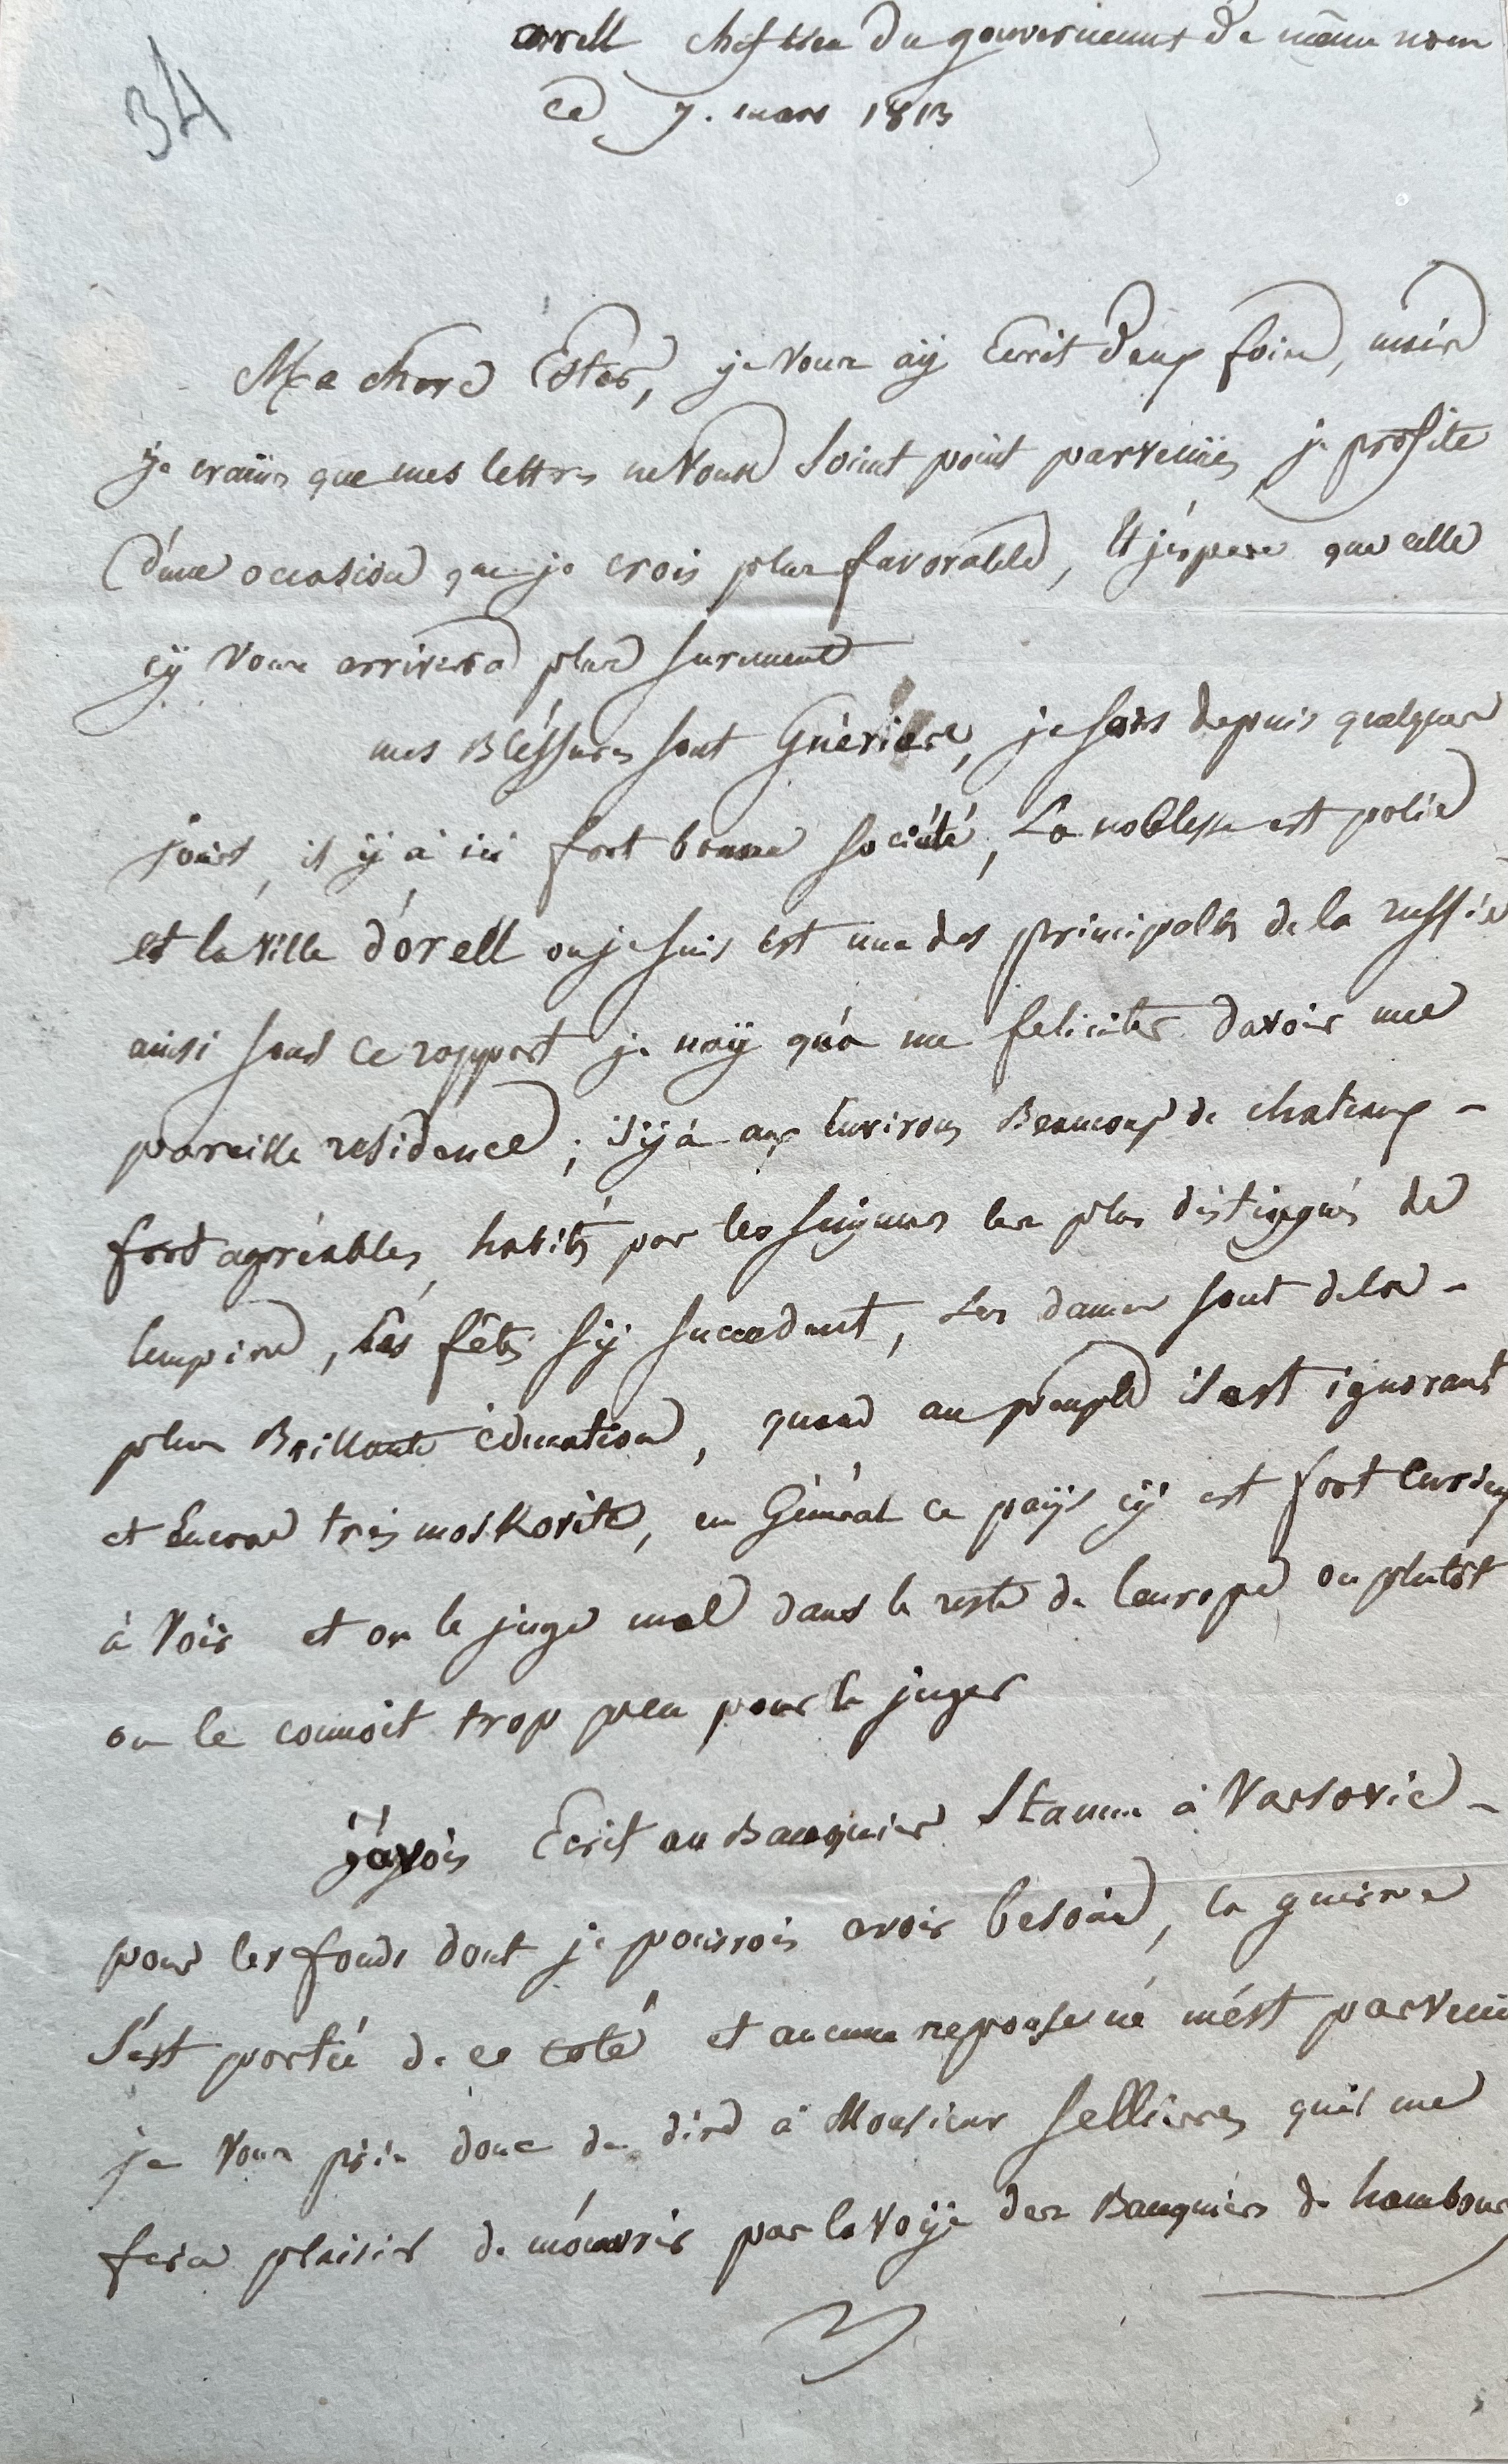 34
orell chef lieu du gouvernement de même nom
ce 7. mars 1813
Ma chere Ester, je vous aÿ Ecrit deux fois, mais
je crains que mes lettres ne vous soint point parvenües je profite
d'une occasion que je crois plus favorable, Et j'éspere que celle
cÿ vous arrivera plus surement
mes Bléssures sont Guériese, je sors depuis quelques
jours, il ÿ à ici fort bonne société, La noblesse est polie
et la ville d'orell ou je suis est une des principalles de la russie
ainsi sous ce rapport je naÿ qu'a me feliciter davoir une
pareille residence; il ÿ à aux Environs Beaucoup de chateaux -
fort agréables, habités par les seigneurs les plus distingués de
lempire, Les fêtes s'ÿ succedent, Les dames sont de la -
plus Brillante éducation, quand au peuple il est ignorant
et Encore très moskovite, en Général ce païjs cÿ est fort Curieux
à voir et on le juge mal dans le reste de leurope ou plutôt
on le connoit trop peu pour le juger
j'avois Ecrit au Banquier Stamm à Varsovie -
pour les fonds dont je pourrois avoir besoin, la guerre
s'est portée de ce coté et aucune reponse né m'ést parvenüe
je vous prie donc de dire à Monsieur Sellieres quil me
fera plaisir de m'ouvrir par la voÿe des Banquiers de hambourg